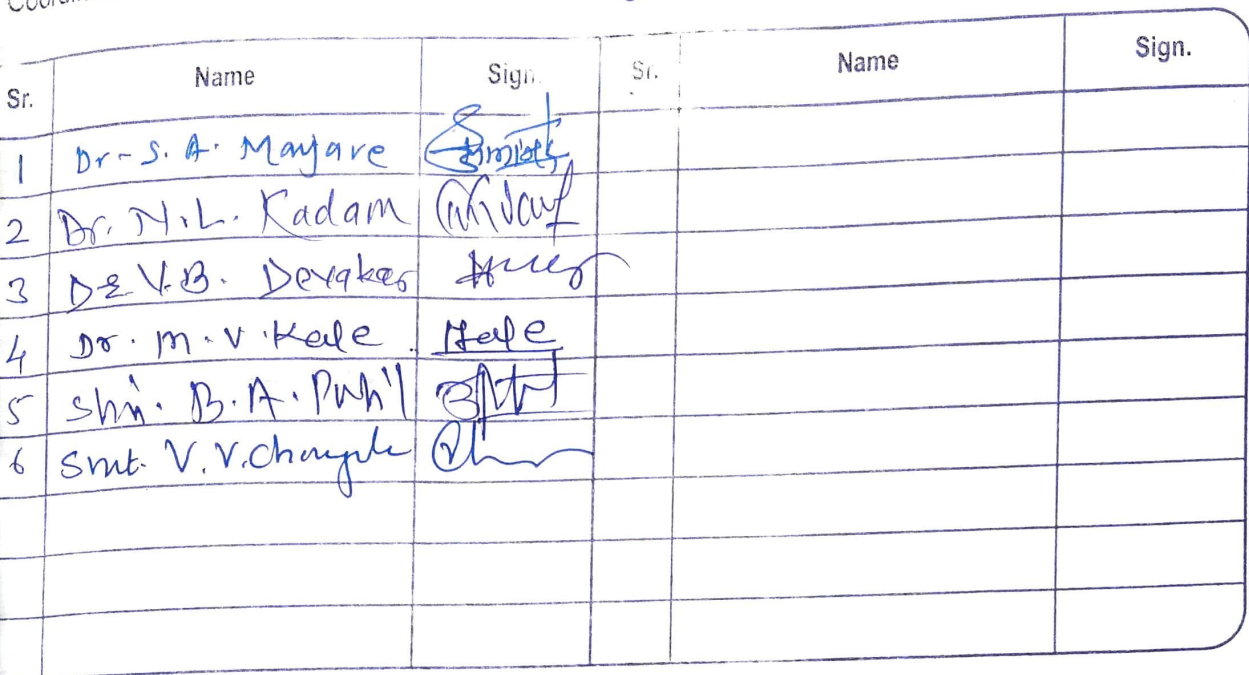 Sr. Name Sign. Sr. Name Sign.
1 Dr-S. A. Mayare
2 Dr. N.L. Kadam
3 Dr V.B. Devakar
4 Dr. M. V. Kale Kale
5 Shri. B.A. Patil
6 Smt. V.V. Chougule